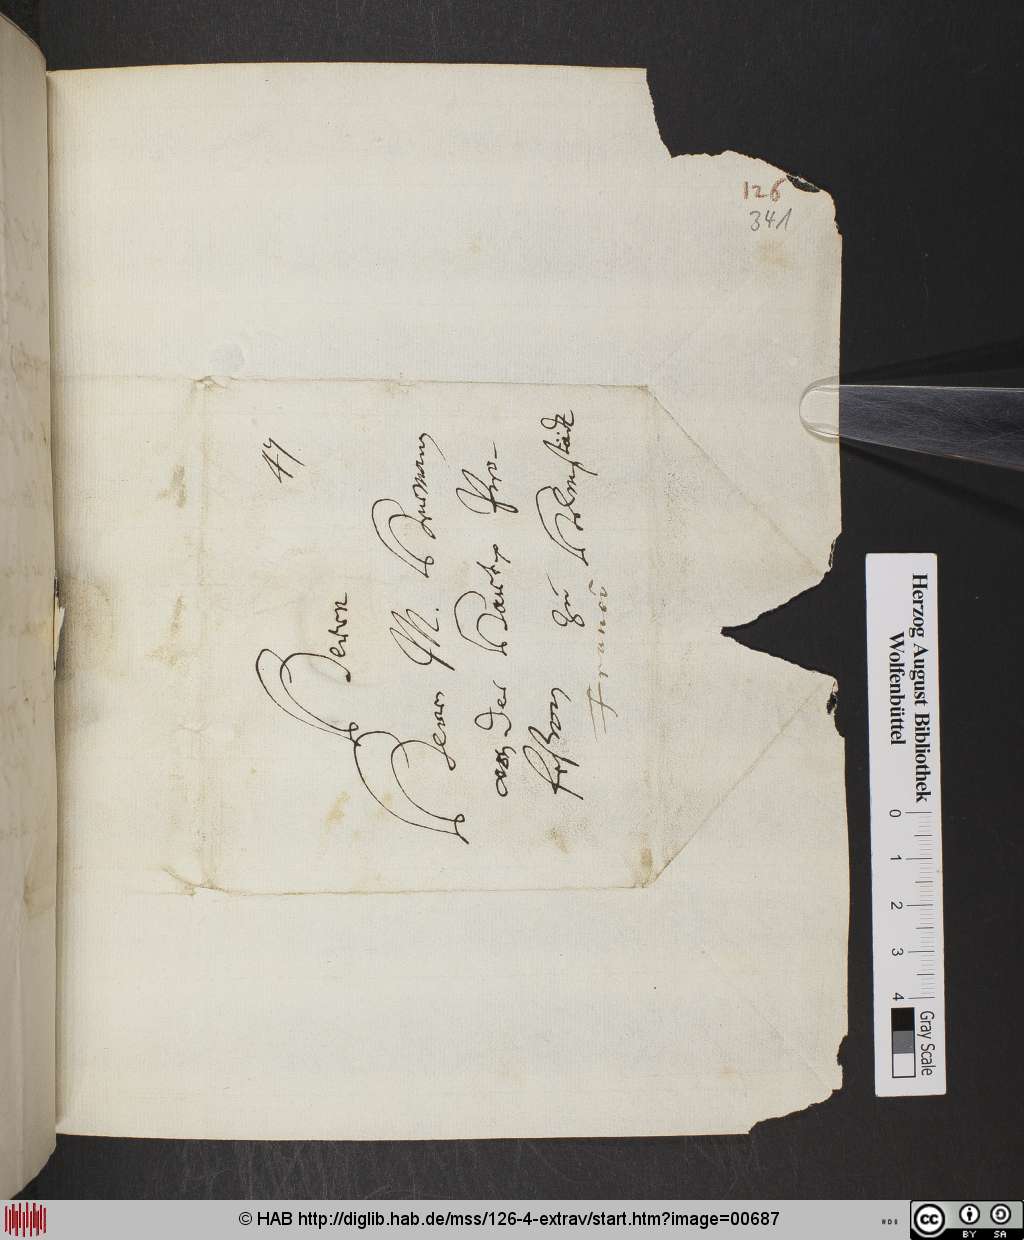 126
341
47
Herrn
Herrn M. Hermann
von der Hardt Pro-
fesson zu Helmstädt
Franco
Herzog August Bibliothek
Wolfenbüttel
0 1 2 3 4
Gray Scale
© HAB http://diglib.hab.de/mss/126-4-extrav/start.htm?image=00687
cc
BY SA